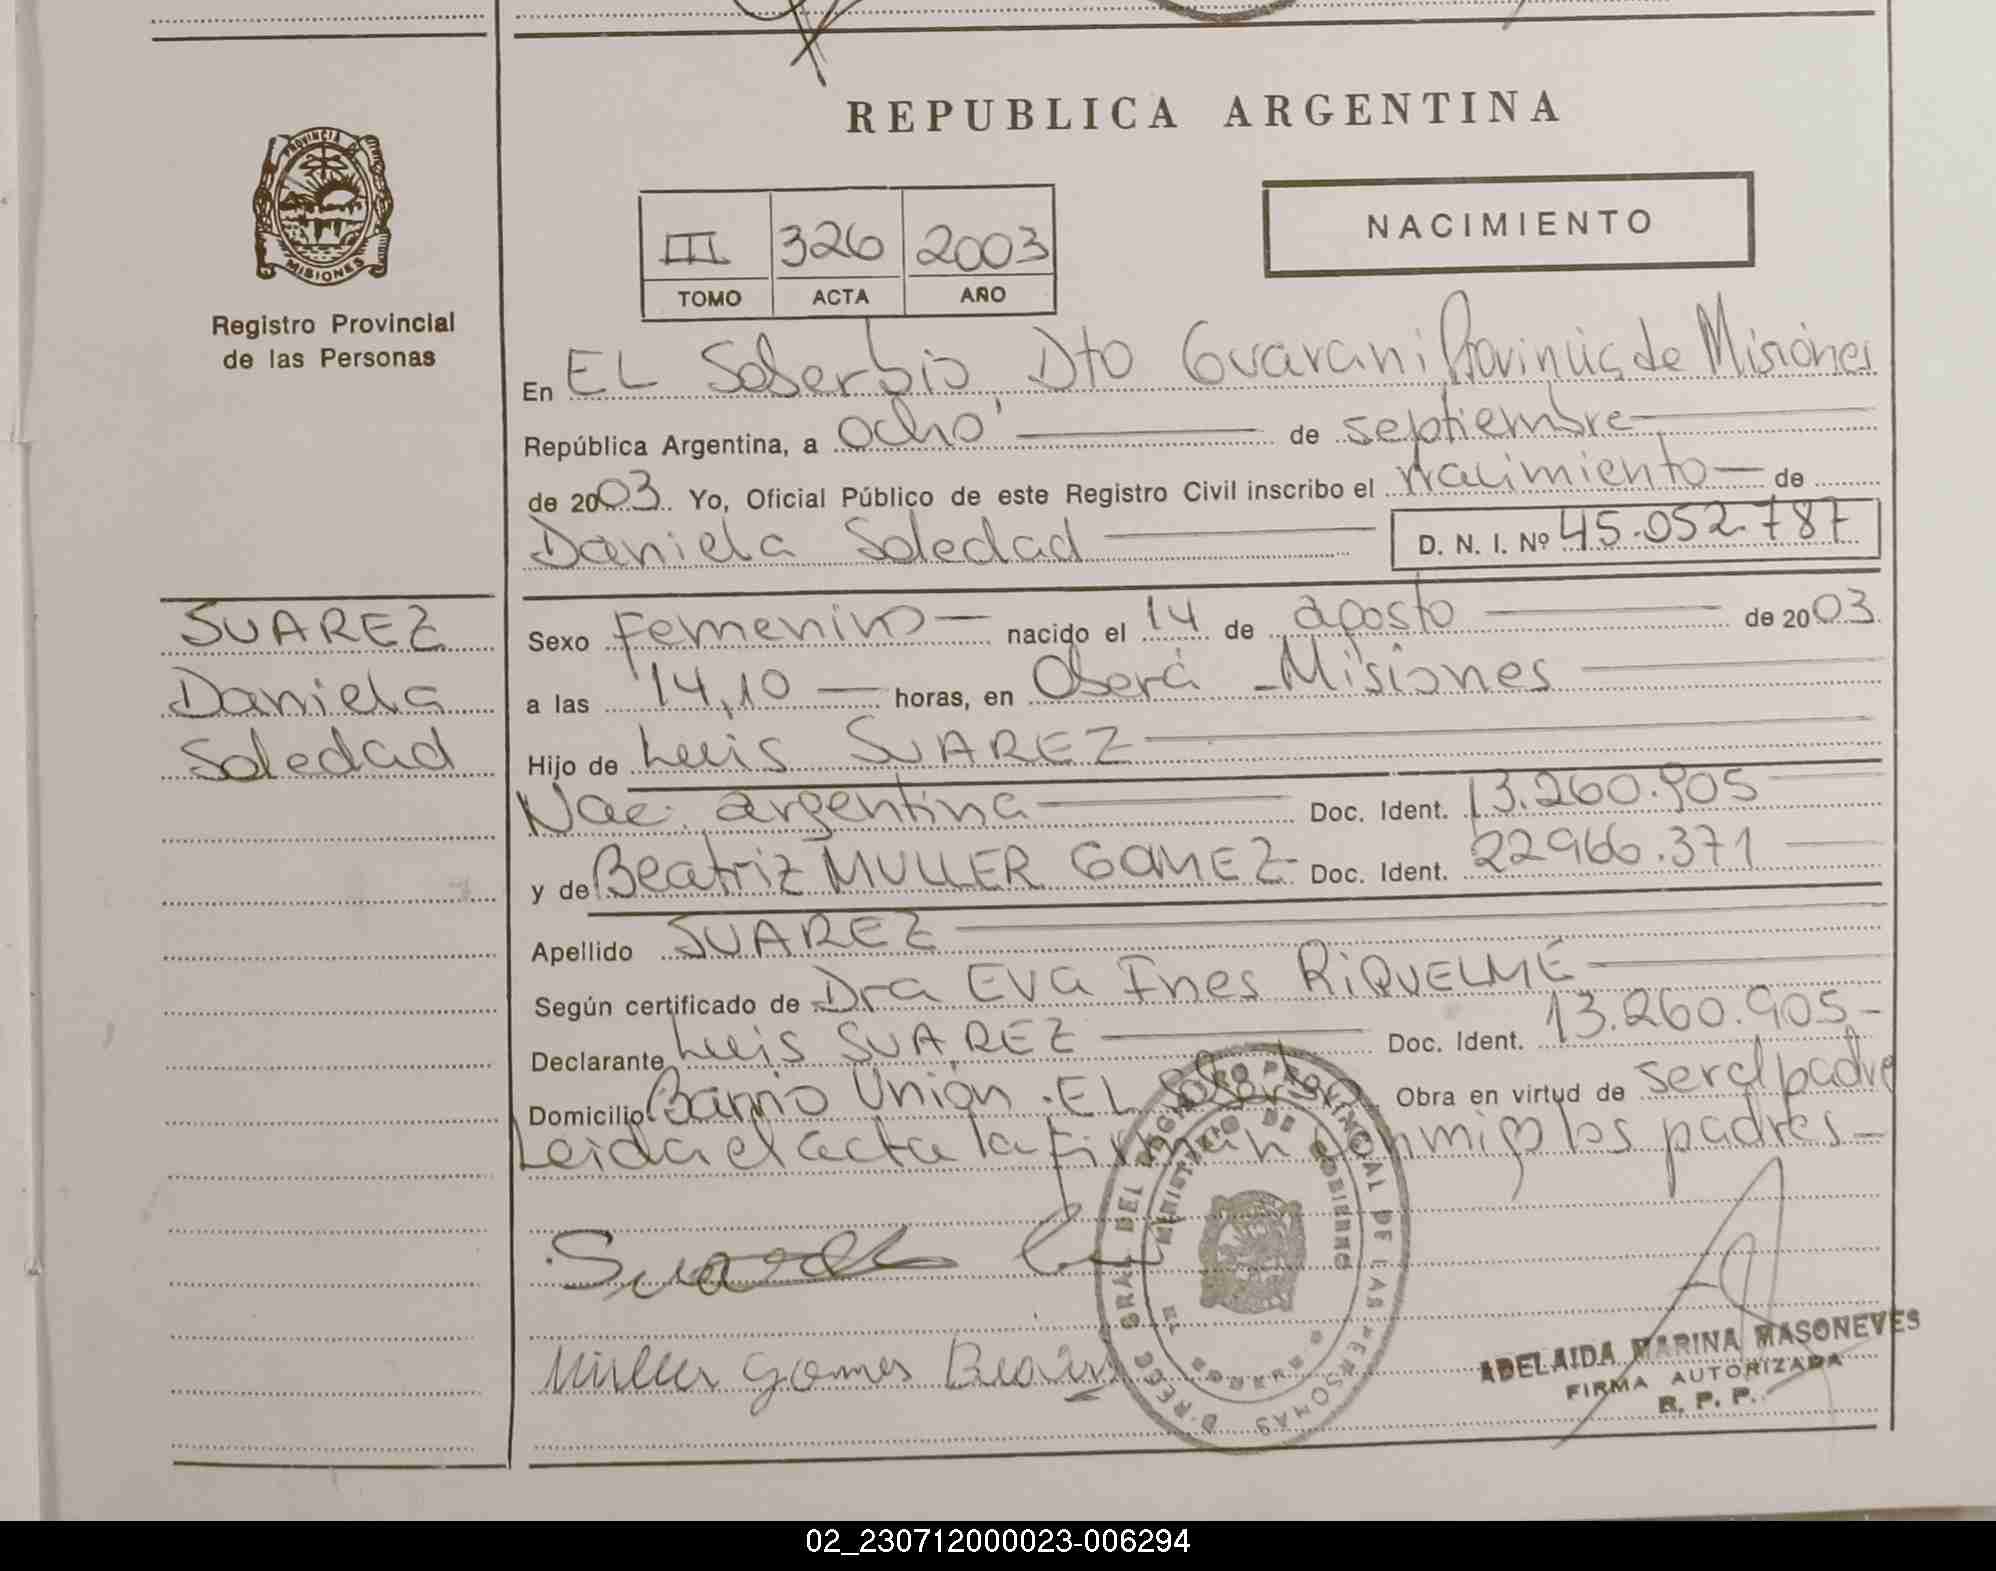 REPUBLICA ARGENTINA
PROVINCIA DE
MISIONES
Registro Provincial
de las Personas
III 326 2003
TOMO ACTA AÑO
NACIMIENTO
En EL Soberbio Dto Guarani Provincia de Misiones
República Argentina, a ocho de septiembre
de 2003 Yo, Oficial Público de este Registro Civil inscribo el nacimiento de
Daniela Soledad D. N. I. Nº 45.052.787
SUAREZ
Daniela
Soledad
Sexo Femenino nacido el 14 de agosto de 2003
a las 14,10 horas, en Oberá - Misiones
Hijo de Luis SUAREZ
Nac. argentina Doc. Ident. 13.260.905
y de Beatriz MULLER GOMEZ Doc. Ident. 22966.371
Apellido SUAREZ
Según certificado de Dra Eva Ines RIQUELME
Declarante Luis SUAREZ Doc. Ident. 13.260.905-
Domicilio Barrio Unión. EL Soberbio Obra en virtud de ser el padre
Leida el acta la firman conmigo los padres-
Suarez
Muller Gomes Beatriz
MINISTERIO DE GOBIERNO
PROVINCIAL DE LAS PERSONAS
ADELAIDA MARINA MASONEVES
FIRMA AUTORIZADA
R. P. P.
02_230712000023-006294